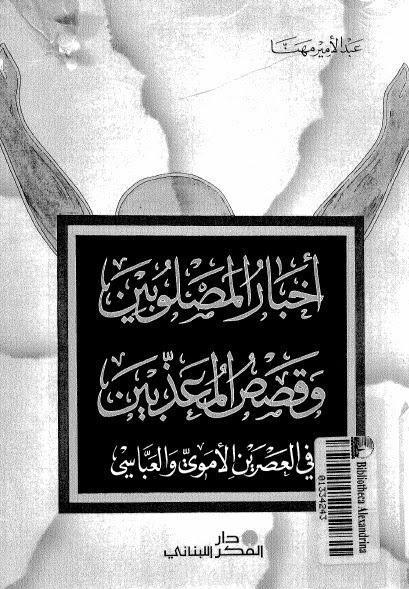 عبد الأمير مهنّا
أخبار المصلوبين
وقصص المعذّبين
في العصرين الأموي والعبّاسي
دار
الفكر اللبناني
Bibliotheca Alexandrina